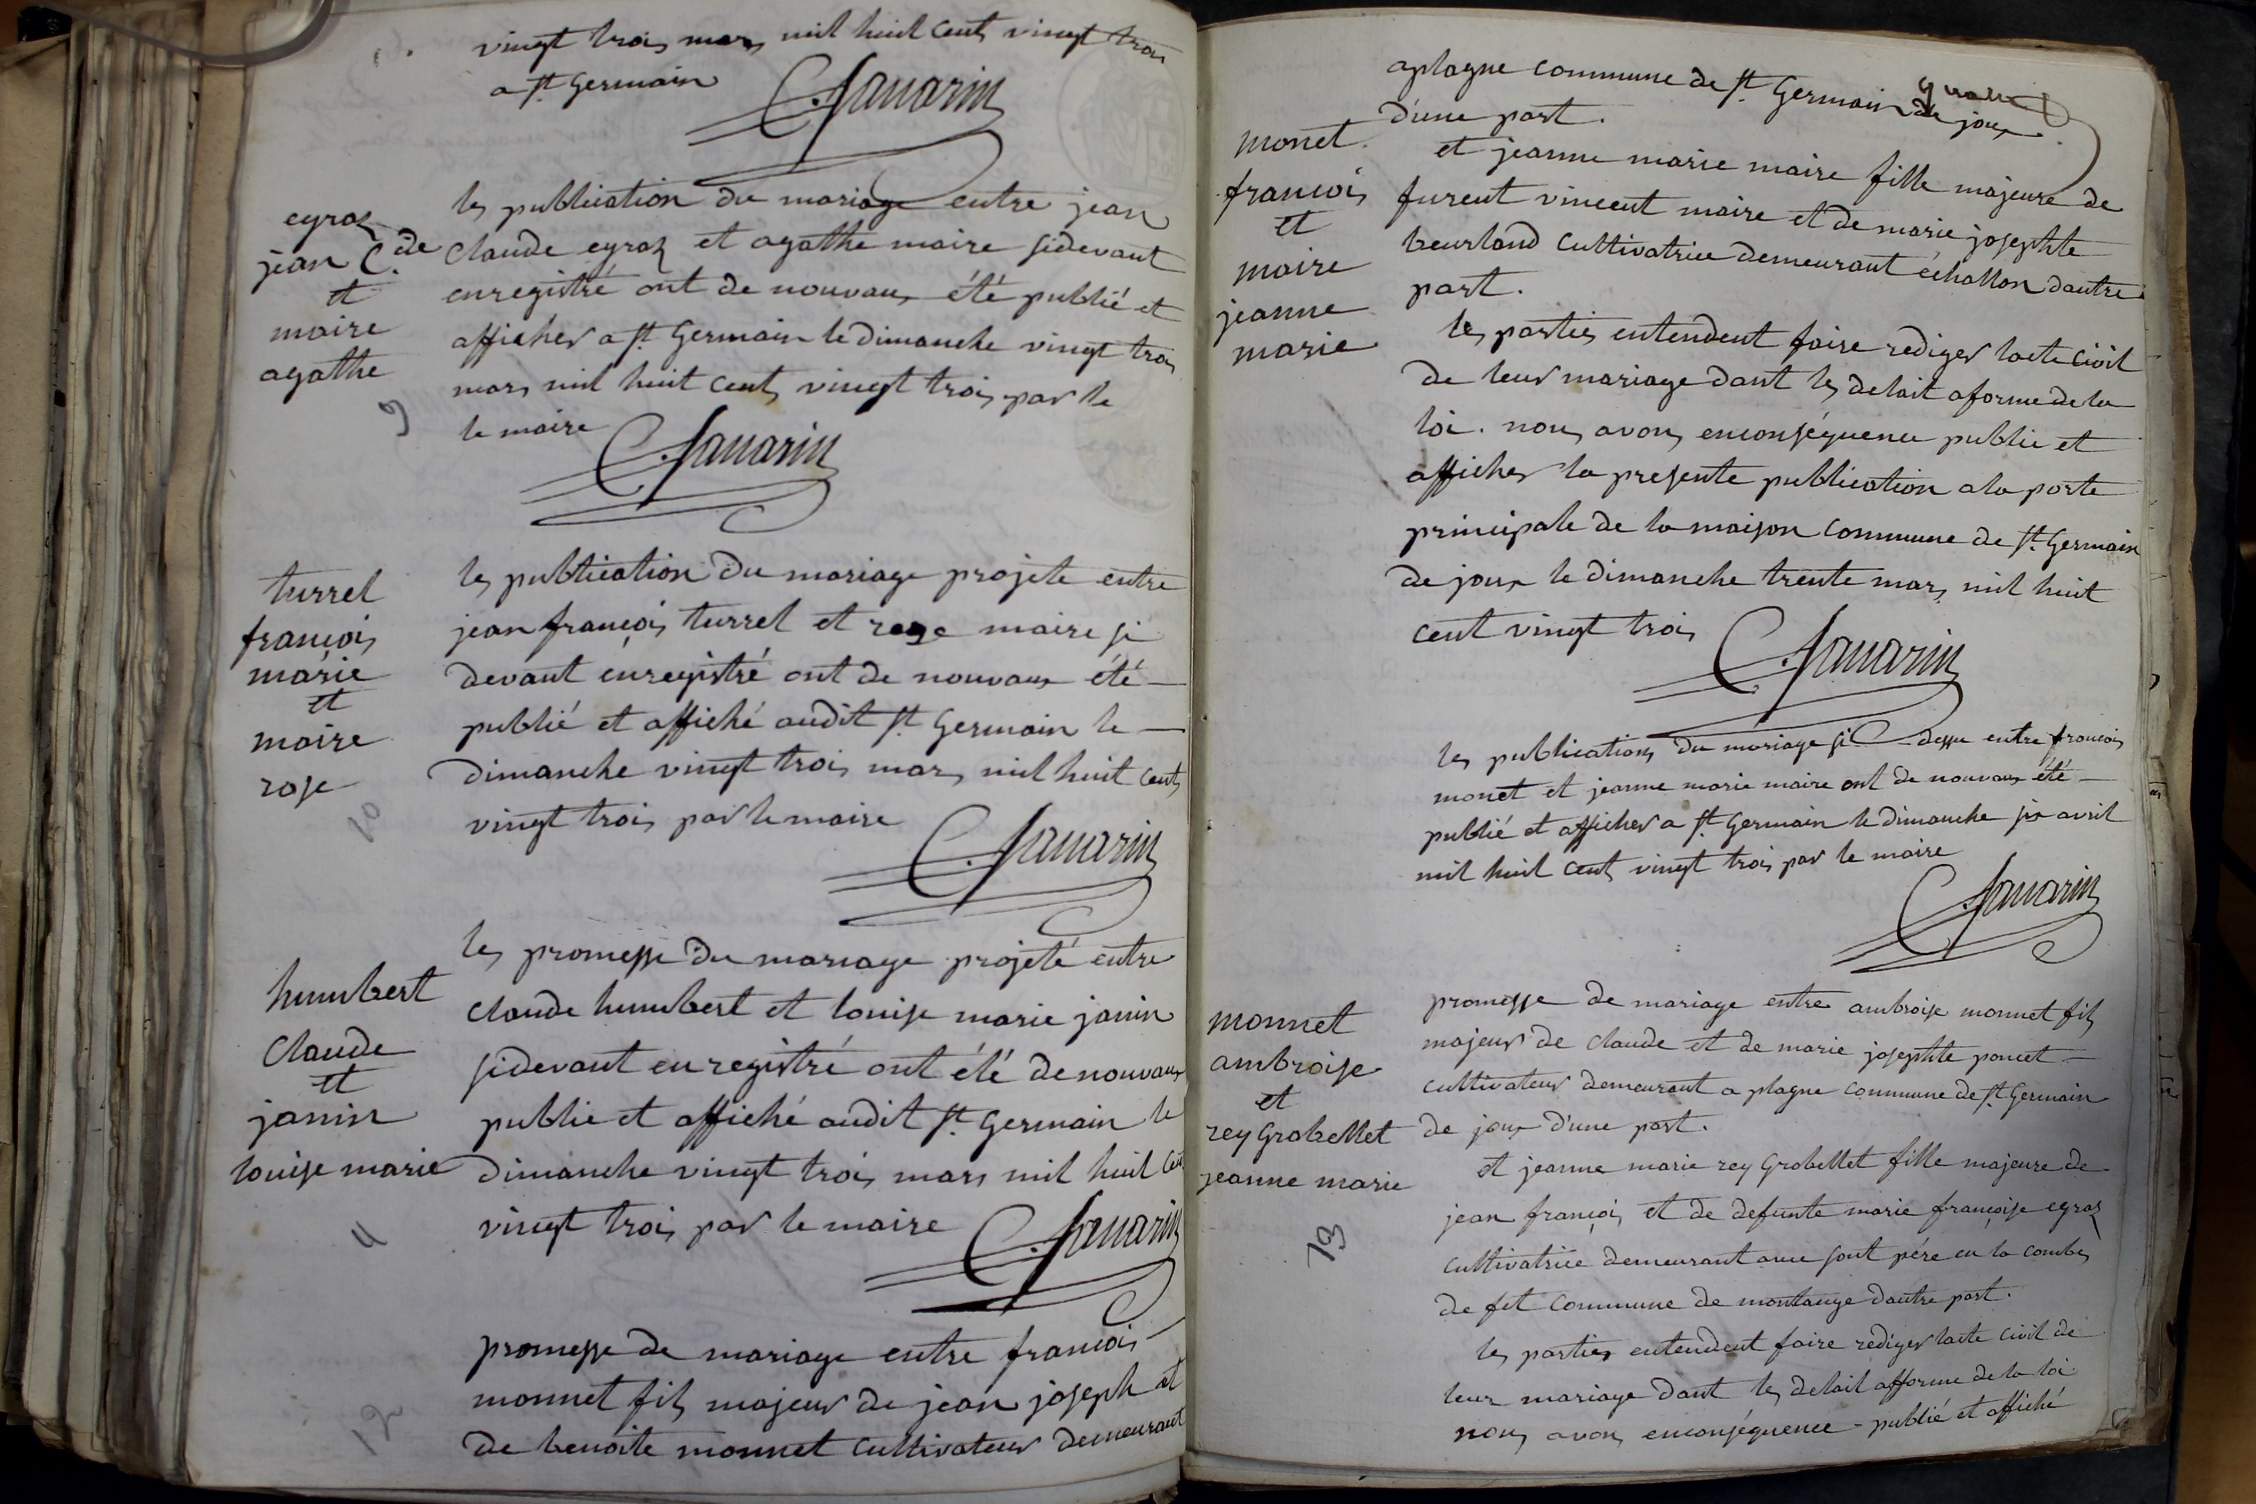 vingt trois mars mil huit cents vingt trois
a st Germain
C. Savarin
eyraz
jean C.de
et
maire
agathe
9
les publication du mariage entre jean
claude eyraz et agathe maire sidevant
enregistré ont de nouvaux été publié et
afficher a st Germain le dimanche vingt trois
mars mil huit cents vingt trois par le
le maire
C. Savarin
turrel
françois
marie
et
maire
rose
10
les publication du mariage projete entre
jean françois turrel et rose maire si
devant énregistré ont de nouvaux été
publié et affiché audit st Germain le
dimanche vingt trois mars mil huit cents
vingt trois par le maire
C. Savarin
humbert
Claude
et
janin
louise marie
11
les promesse du mariage projeté entre
claude humbert et louise marie janin
sidevant enregistré ont été de nouvaux
publie et affiché audit st Germain le
dimanche vingt trois mars mil huit cent
vingt trois par le maire
C. Savarin
12
promesse de mariage entre francois
monnet fils majeur de jean joseph et
de benoite monnet cultivateur demeurant
aplagne commune de st Germain de joux
d'une part.
monet
francois
et
maire
jeanne
marie
et jeanne marie maire fille majeure de
furent vincent maire et de marie josephte
beurland cultivatrice demeurant échallon dautre
part.
les parties entendent faire rediger lacte civil
de leur mariage dant les delait aforme de la
loi. nous avons enconséquence publie et
afficher la presente publication a la porte
principale de la maison commune de st. Germain
de joux le dimanche trente mars mil huit
cent vingt trois
C. Savarin
les publications du mariage si dessu entre francois
monet et jeanne marie maire ont de nouvaux été
publié et afficher a st Germain le dimanche six avril
mil huit cents vingt trois par le maire
C. Savarin
monnet
ambroise
et
rey Grobellet
jeanne marie
13
promesse de mariage entre ambroise monnet fils
majeur de claude et de marie josephte poncet
cultivateur demeurant a plagne commune de st. Germain
de joux d'une part.
et jeanne marie rey Grobellet fille majeure de
jean françois et de defunte marie françoise egraz
cultivatrice demeurant avec sont pére en la combes
de fet commune de montange dautre part.
les parties entendent faire rediger lacte civil de
leur mariage dant les delait afforme de la loi
nous avons enconséquence publié et affiché